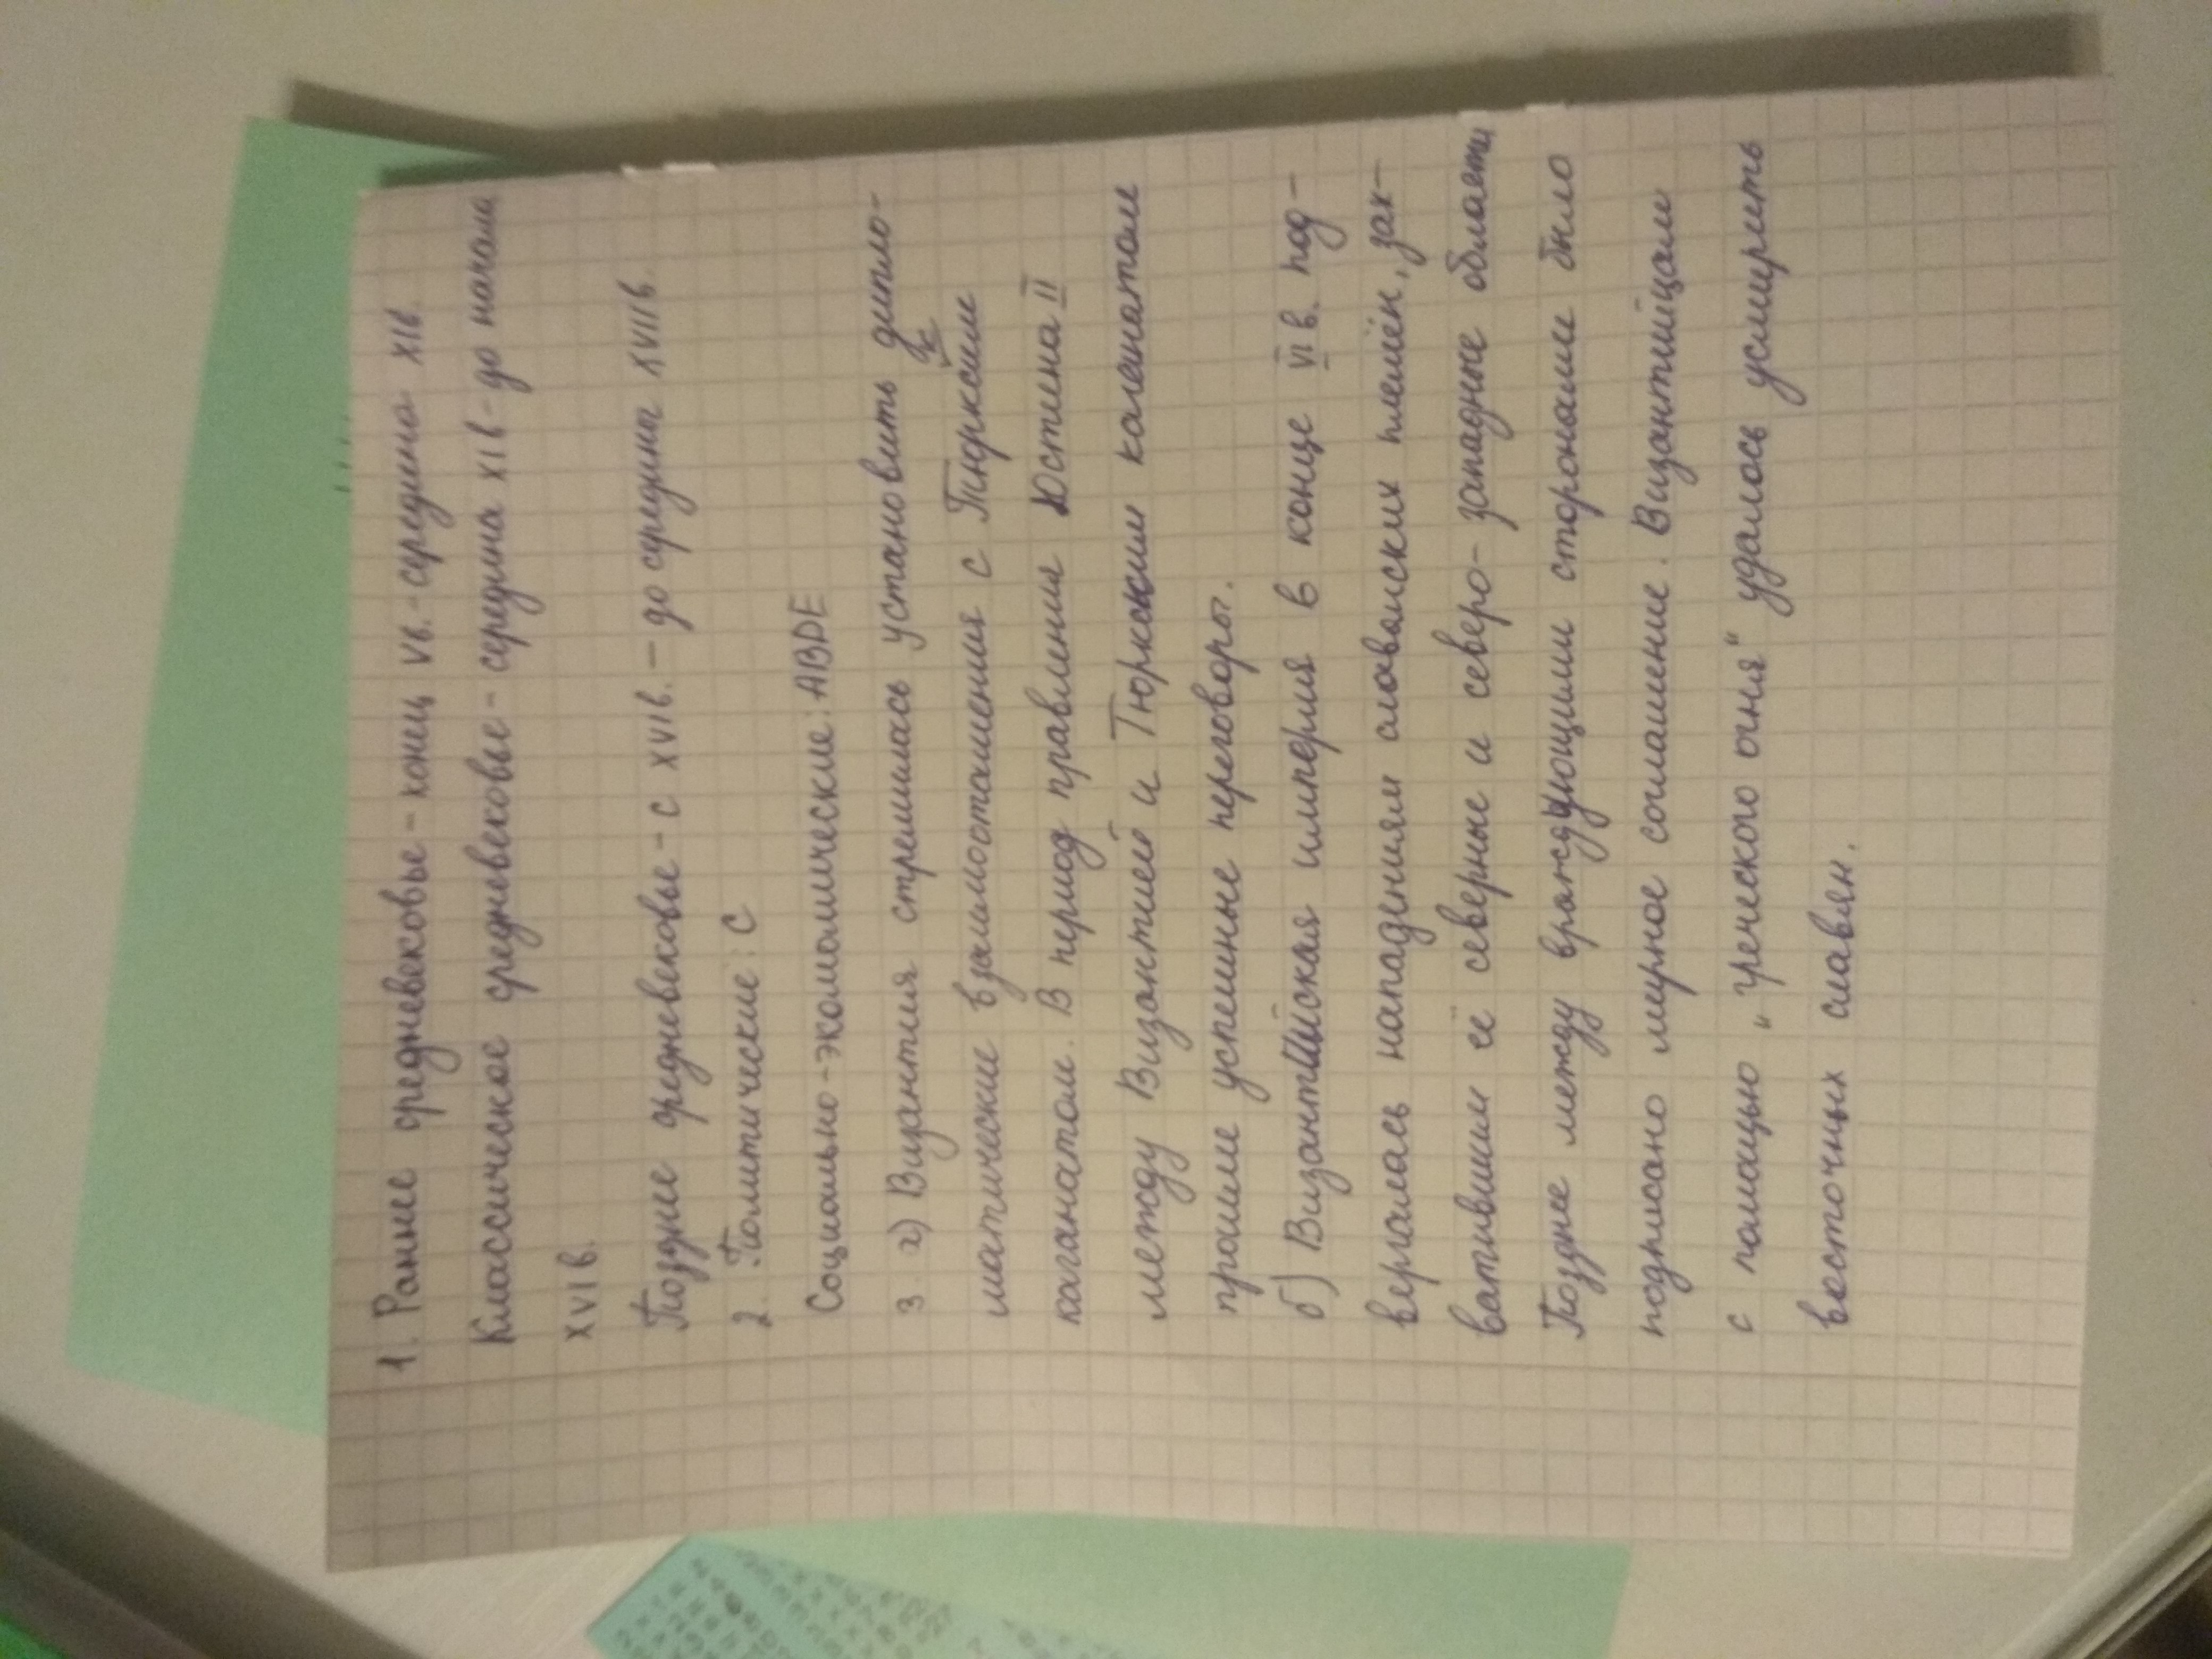 1. Раннее средневековье - конец Vв. - середина XIв.
Классическое средневековье - середина XIв - до начала
XVIв.
Позднее средневековье - с XVIв. - до середины XVIIв.
2. Политические: С
Социально-экономические: ABDE
3. а) Византия стремилась установить дипло-
матические взаимоотношения с Тюрксикм
каганатом. В период правления Юстина II
между Византией и Тюркским каганатом
прошли успешные переговоры.
б) Византийская империя в конце VI в. под-
верглась нападениям славянских племён, зах-
ватившим её северные и северо-западные области
Позднее между враждующими сторонами было
подписано мирное соглашение. Византийцам
с помощью „греческого огня" удалось усмирить
восточных славян.